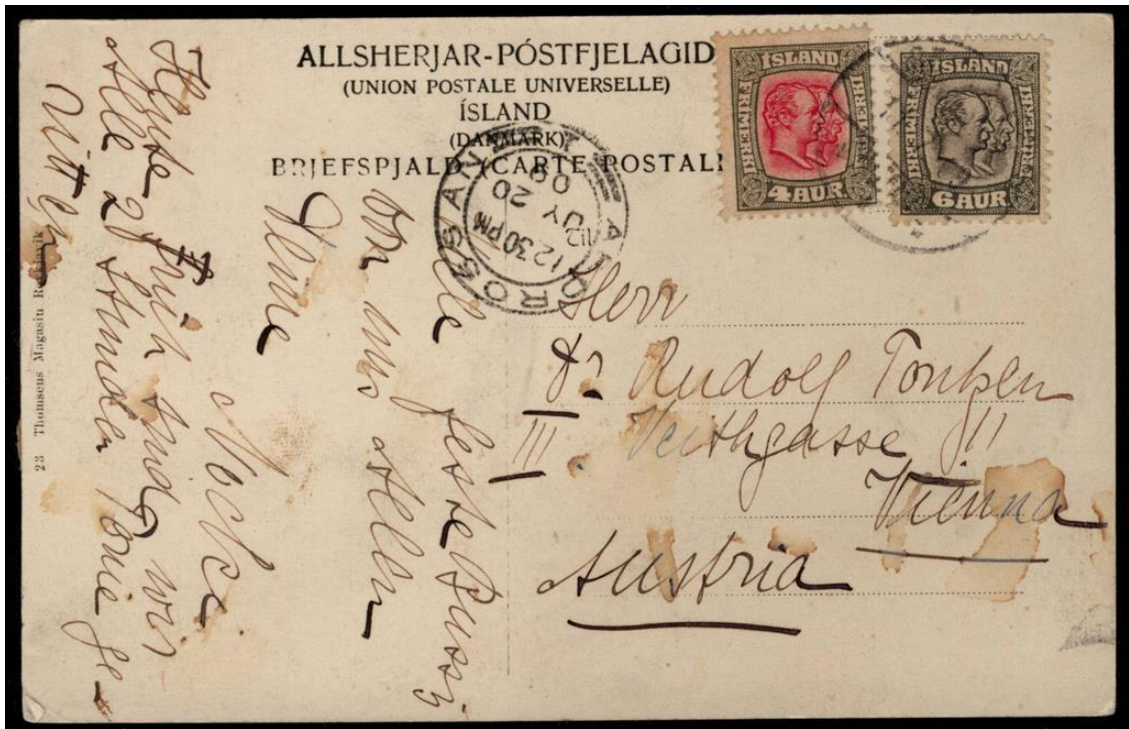 ALLSHERJAR-PÓSTFJELAGID
(UNION POSTALE UNIVERSELLE)
ÍSLAND
(DANMARK)
BRJEFSPJALD (CARTE POSTAL
ÍSLAND
FRIMERKI
4 AUR
ÍSLAND
FRIMERKI
6 AUR
ARDROSSAN
1230 PM
JY 20
09
Herr
Dr Rudolf
III Veithgasse 11
Vienna
Austria
23 Thomsens Magasin Reykjavik
Heute früh sind wir
alle 20 Stunden
Woche
Deine
Alle feste Bussi
von uns allen